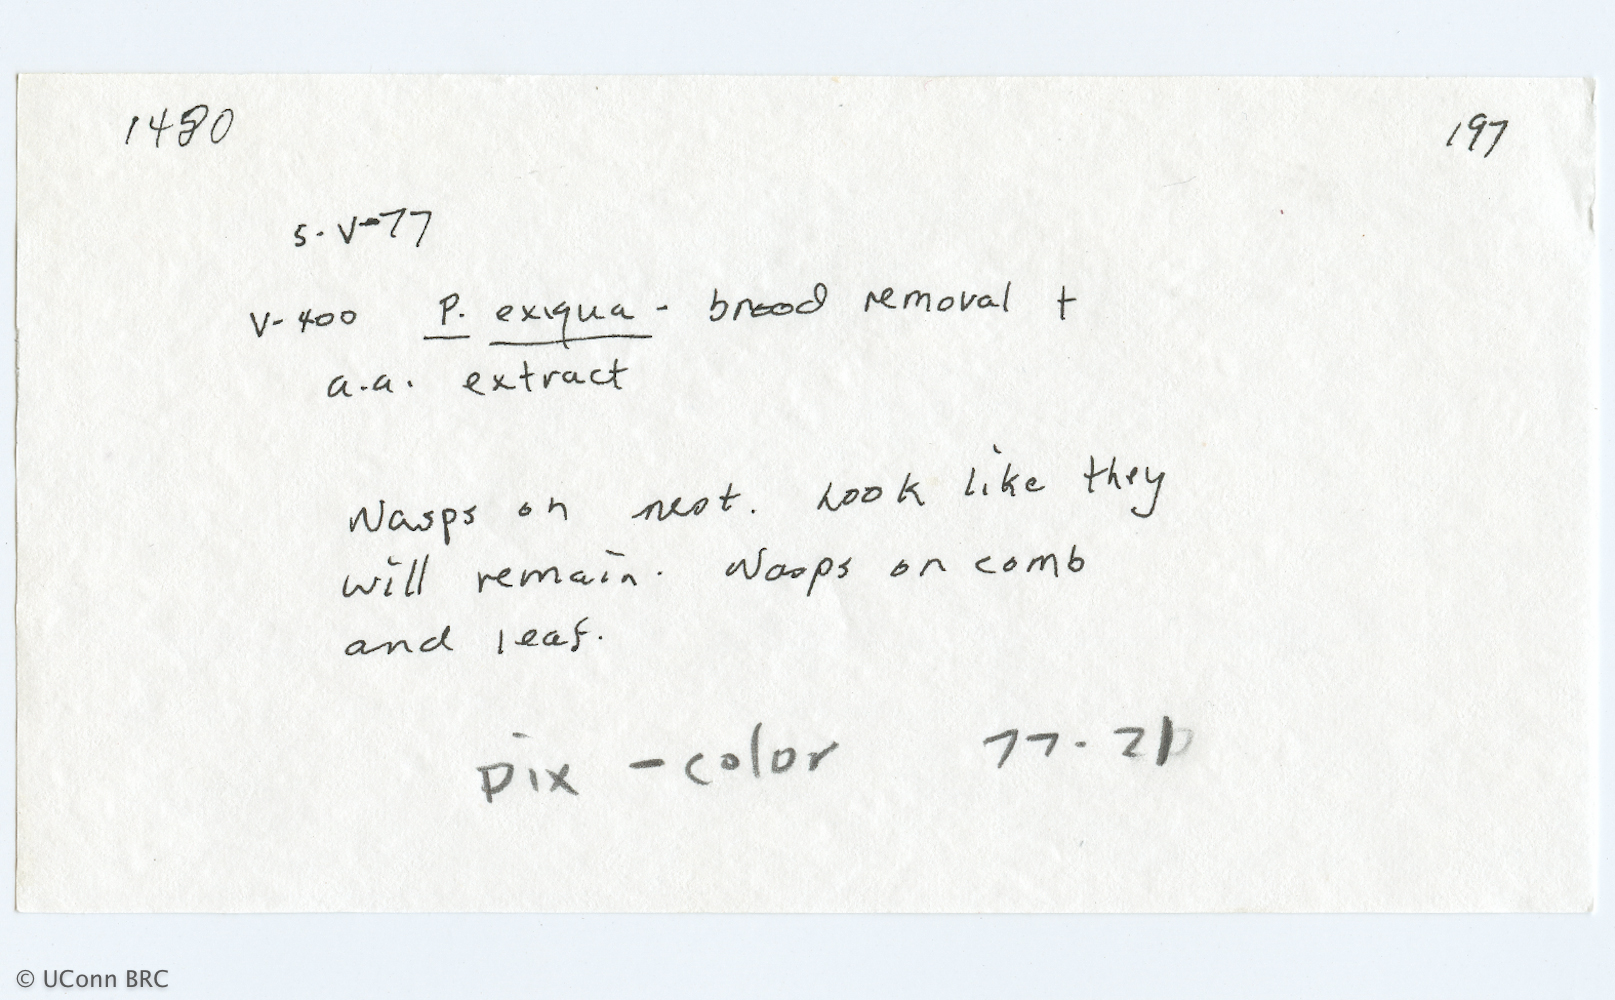 1480 197
5-V-77
V-400 P. exiqua - brood removal +
a.a. extract
Wasps on nest. Look like they
will remain. Wasps on comb
and leaf.
pix - color 77-21
© UConn BRC